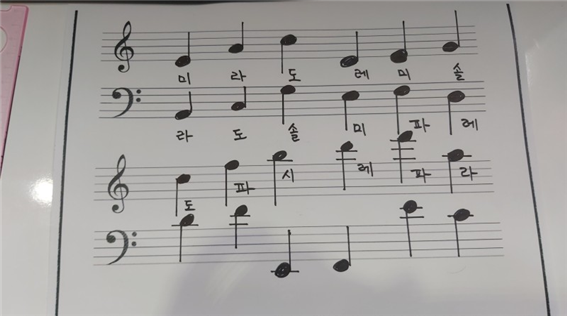 미 라 도 레 미 솔
라 도 솔 미 파 레
도 파 시 레 파 라